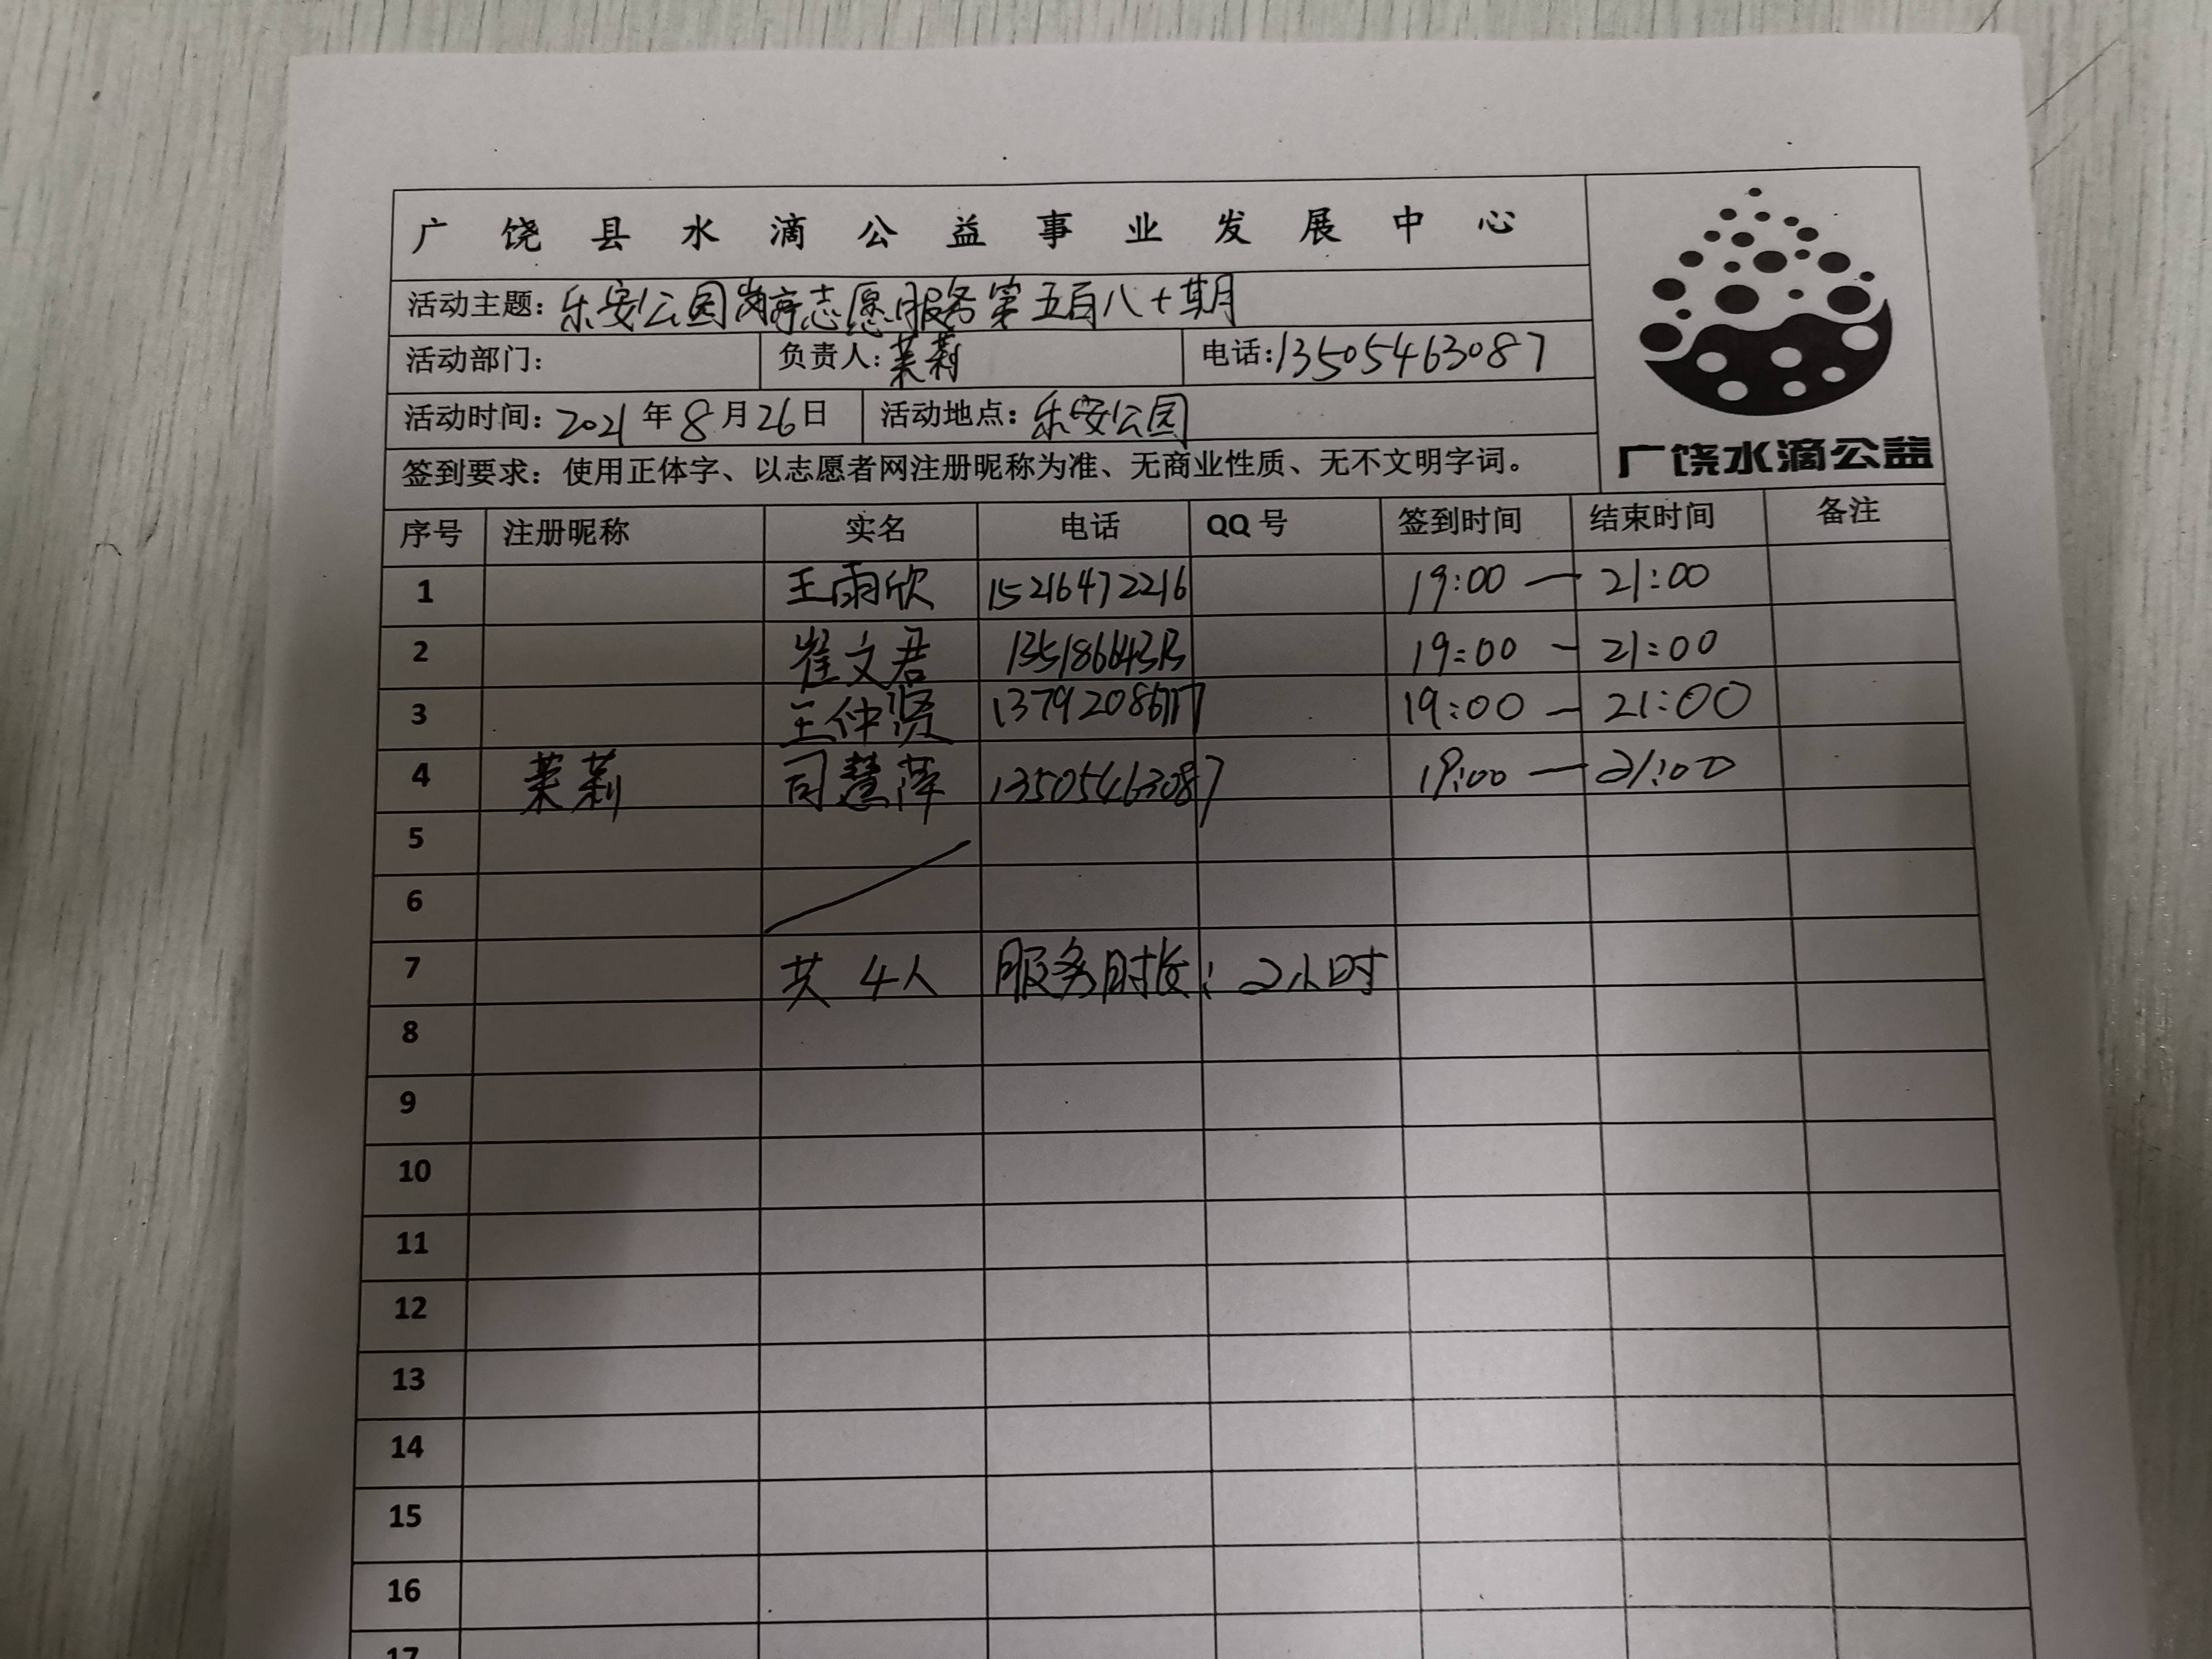 广饶县水滴公益事业发展中心
活动主题：乐安公园岗亭志愿服务第五百八十期
活动部门： 负责人：茉莉 电话：13505463087
活动时间：2021年8月26日 活动地点：乐安公园
签到要求：使用正体字、以志愿者网注册昵称为准、无商业性质、无不文明字词。
广饶水滴公益
序号 注册昵称 实名 电话 QQ号 签到时间 结束时间 备注
1 王雨欣 15216472216 19:00 — 21:00
2 崔文君 19:00 — 21:00
3 王仲贤 19:00 — 21:00
4 茉莉 司慧萍 13505463087 19:00 — 21:00
5
6
7 共4人 服务时长：2小时
8
9
10
11
12
13
14
15
16
17